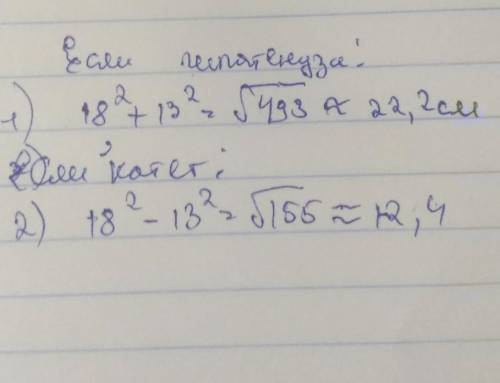 Если гипотенуза:
1) 18² + 13² = √493 ≈ 22,2см
Если катет:
2) 18² - 13² = √155 ≈ 12,4